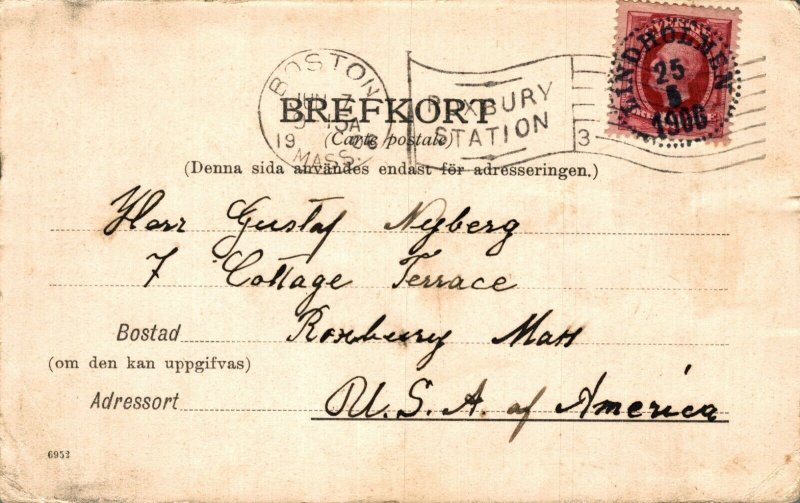 BOSTON
JUN 7
19 06
MASS.
ROXBURY
STATION
3
LINDHOLMEN
25
5
1906
BREFKORT
(Carte postale)
(Denna sida användes endast för adresseringen.)
Herr Gustaf Nyberg
7 Cottage Terrace
Bostad Roxbury Mass
(om den kan uppgifvas)
Adressort U.S.A. af America
6952